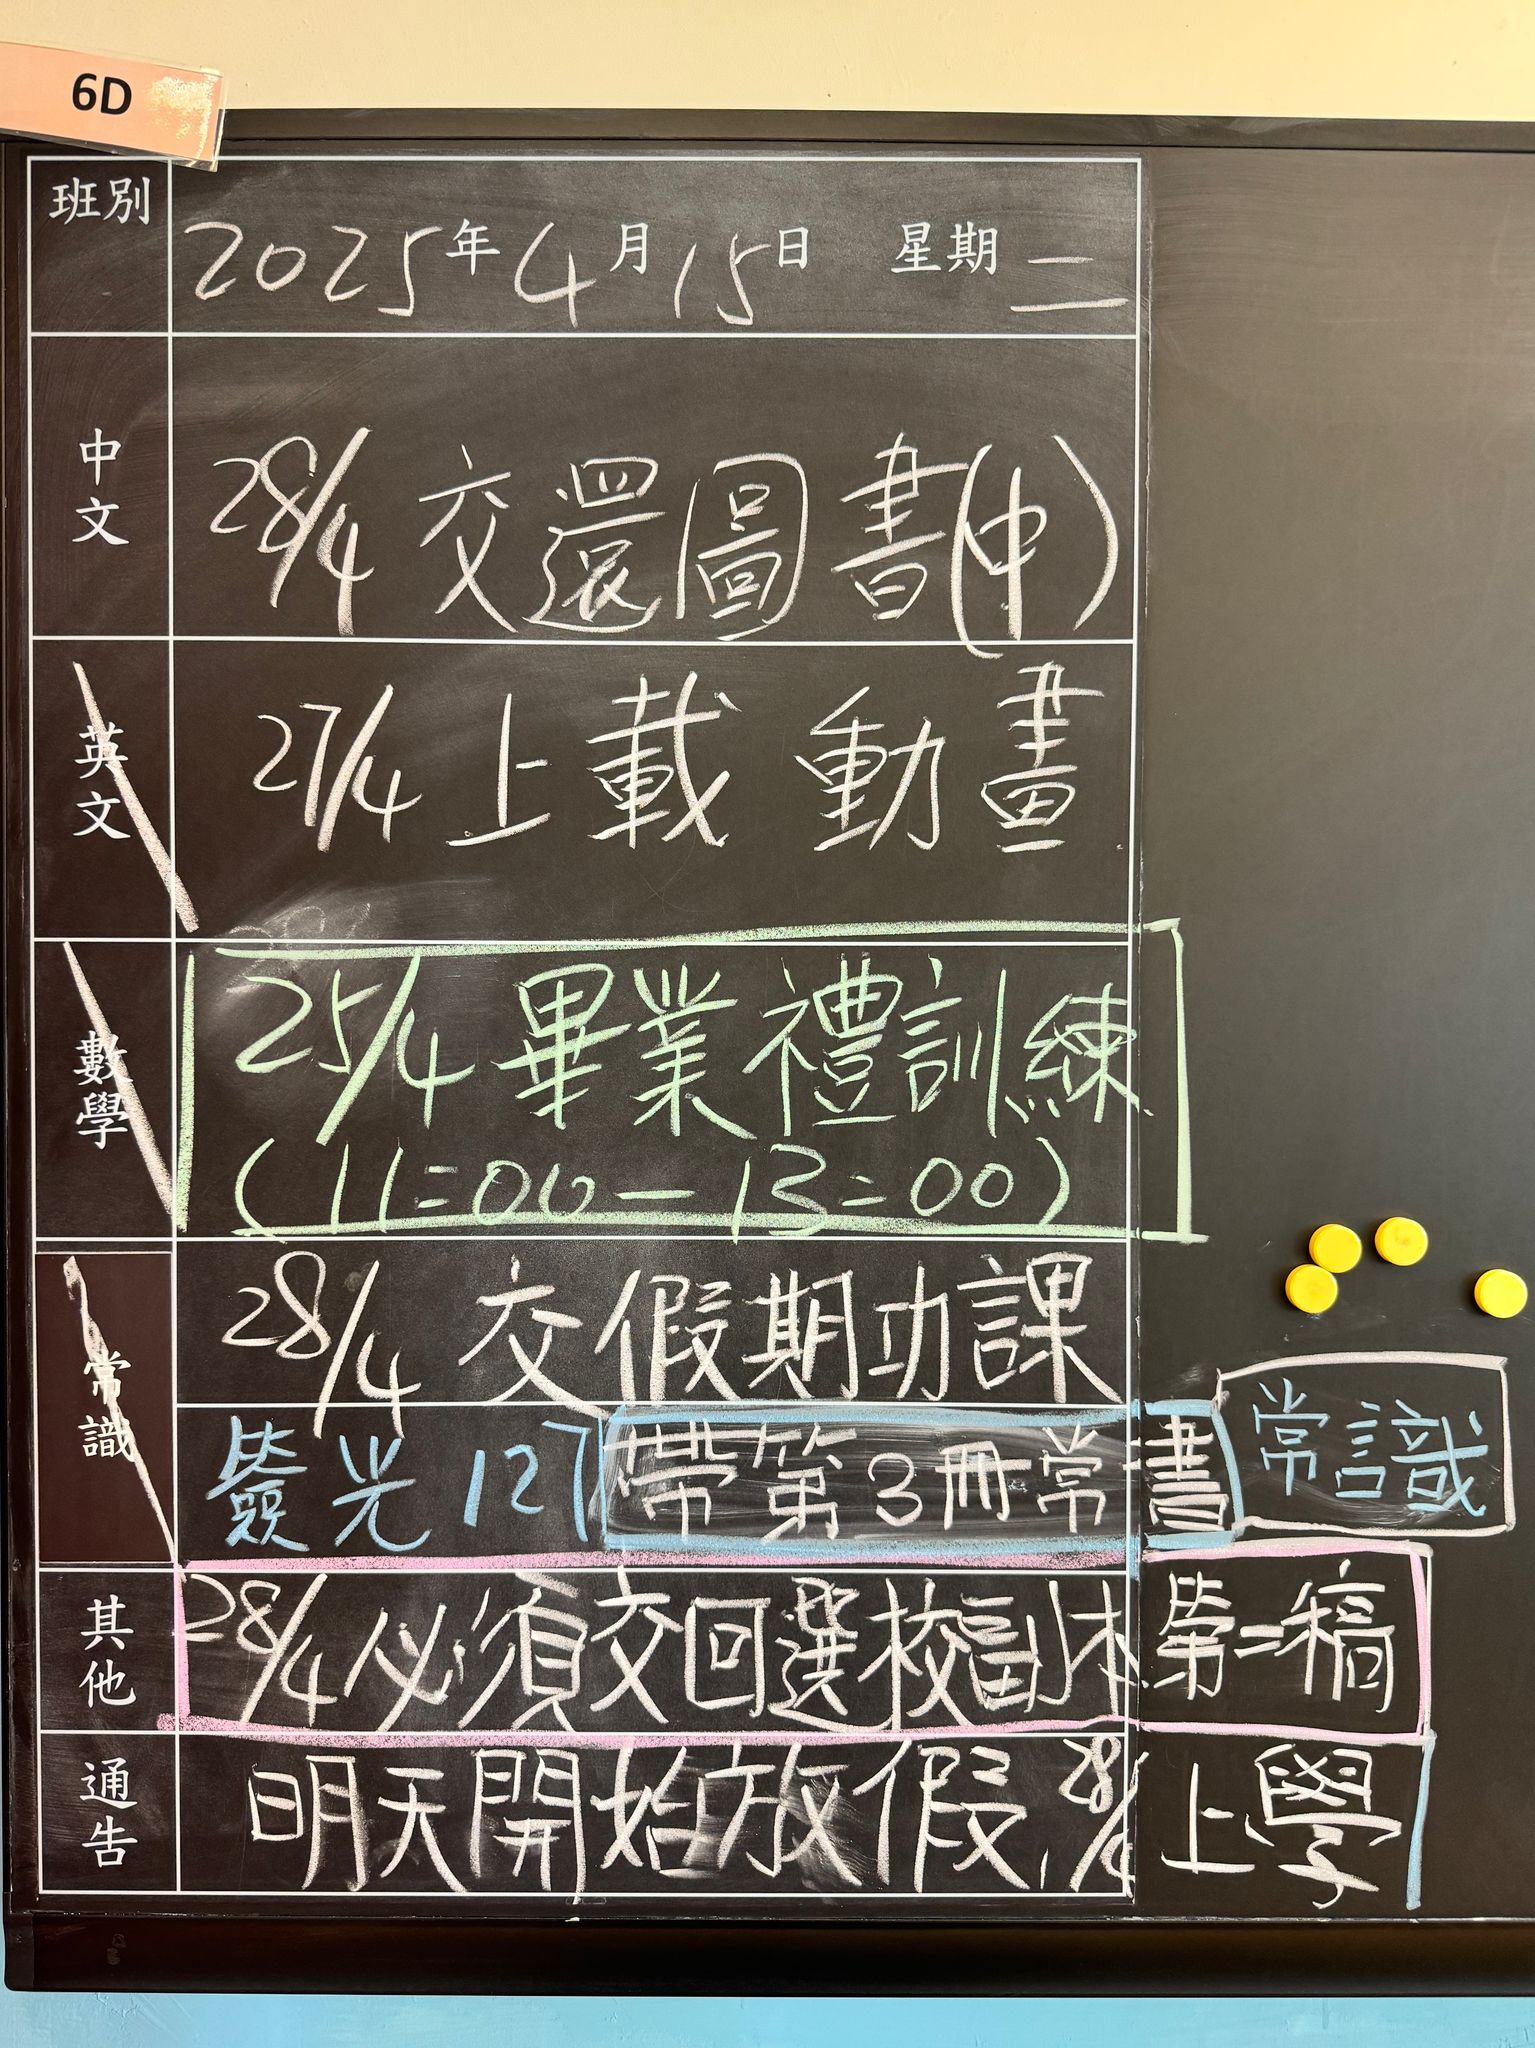 6D
班別
2025年4月15日 星期二
中文
28/4 交還圖書(中)
英文
27/4 上載 動畫
數學
25/4 畢業禮訓練
(11:00 — 13:00)
常識
28/4 交假期功課
光 127
帶第3冊常書
常識
其他
28/4 必須交回選校副本第二稿
通告
明天開始放假, 28/4 上學